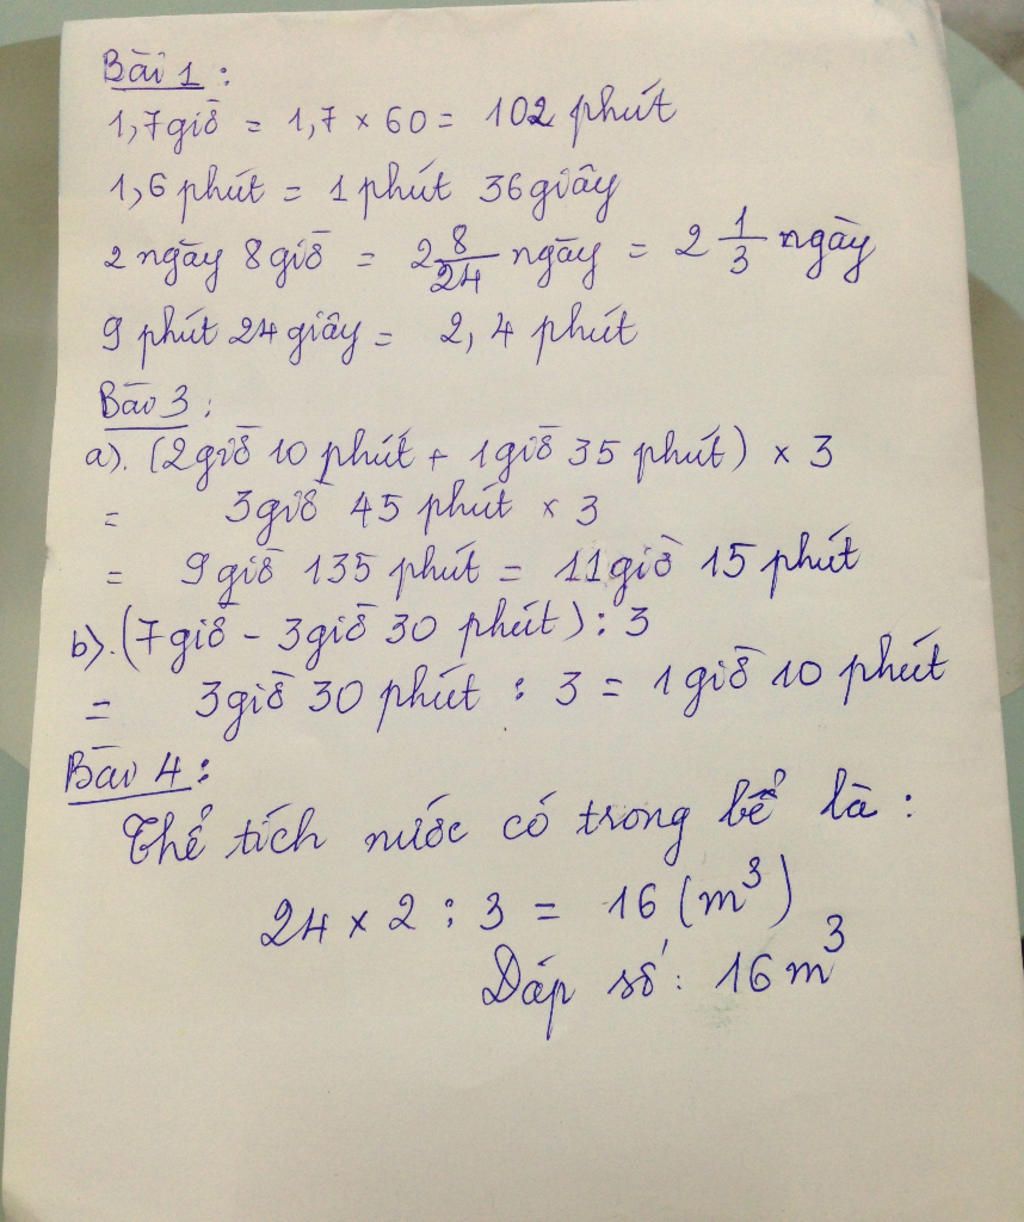 Bài 1 :
1,7 giờ = 1,7 × 60 = 102 phút
1,6 phút = 1 phút 36 giây
2 ngày 8 giờ = 2 8/24 ngày = 2 1/3 ngày
9 phút 24 giây = 2,4 phút
Bài 3 :
a). (2 giờ 10 phút + 1 giờ 35 phút) × 3
= 3 giờ 45 phút × 3
= 9 giờ 135 phút = 11 giờ 15 phút
b). (7 giờ - 3 giờ 30 phút) : 3
= 3 giờ 30 phút : 3 = 1 giờ 10 phút
Bài 4 :
Thể tích nước có trong bể là :
24 × 2 : 3 = 16 (m³)
Đáp số : 16 m³